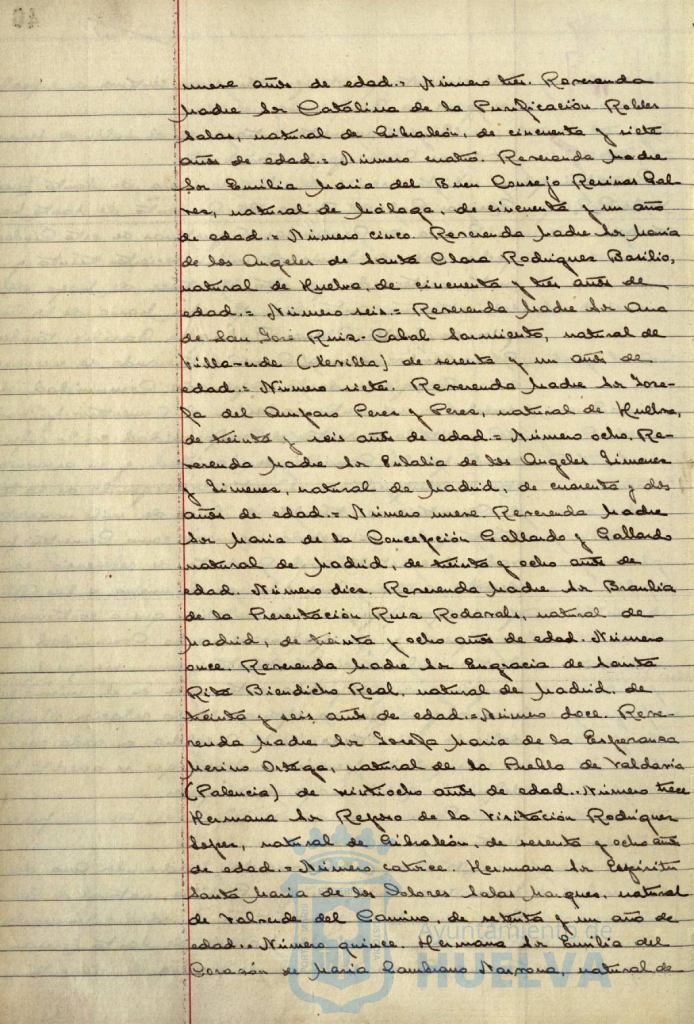 nueve años de edad.= Número tres. Reverenda
Madre Sor Catalina de la Purificación Robles
Salas, natural de Gibraleón, de cincuenta y siete
años de edad.= Número cuatro. Reverenda Madre
Sor Emilia María del Buen Consejo Recinas Gal-
vez, natural de Málaga, de cincuenta y un año
de edad.= Número cinco. Reverenda Madre Sor María
de los Angeles de Santa Clara Rodriguez Basilio,
natural de Huelva, de cincuenta y tres años de
edad.= Número seis.= Reverenda Madre Sor Ana
de San José Ruiz-Cabal Sarmiento, natural de
Villaverde (Sevilla) de sesenta y un años de
edad.= Número siete. Reverenda Madre Sor Jose-
fa del Amparo Perez y Perez, natural de Huelva,
de treinta y seis años de edad.= Número ocho. Re-
verenda Madre Sor Eulalia de los Angeles Gimenez
y Gimenez, natural de Madrid, de cuarenta y dos
años de edad.= Número nueve. Reverenda Madre
Sor María de la Concepción Gallardo y Gallardo
natural de Madrid, de treinta y ocho años de
edad. Número diez. Reverenda Madre Sor Braulia
de la Presentación Ruiz natural de
Madrid, de treinta y ocho años de edad. Número
once. Reverenda Madre Sor Engracia de Santa
Rita Biendicho Real, natural de Madrid, de
treinta y seis años de edad.= Número doce. Reve-
renda Madre Sor Josefa María de la Esperanza
Merino Ortega, natural de la Puebla de Valdavia
(Palencia) de veintiocho años de edad.= Número trece
Hermana Sor Reposo de la Visitación Rodriguez
Lopez, natural de Gibraleón, de sesenta y ocho años
de edad.= Número catorce. Hermana Sor Espiritu
Santo María de los Dolores Salas Marquez, natural
de Valverde del Camino, de setenta y un año de
edad.= Número quince. Hermana Sor Emilia del
Corazón de María Narrona, natural de
Ayuntamiento de
HUELVA